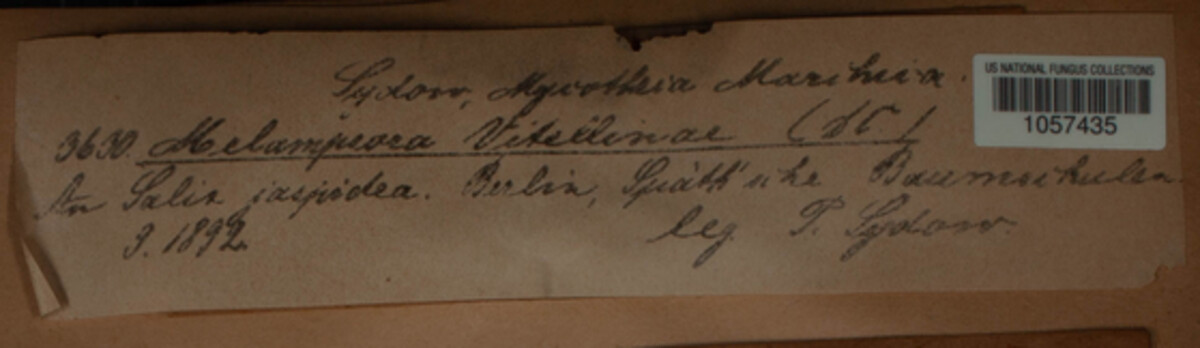 Sydow, Mycotheca Marchica.
US NATIONAL FUNGUS COLLECTIONS
1057435
3630. Melampsora Vitellinae (DC.)
An Salix jaspidea. Berlin, Späth'sche Baumschulen
9. 1892. leg. P. Sydow.